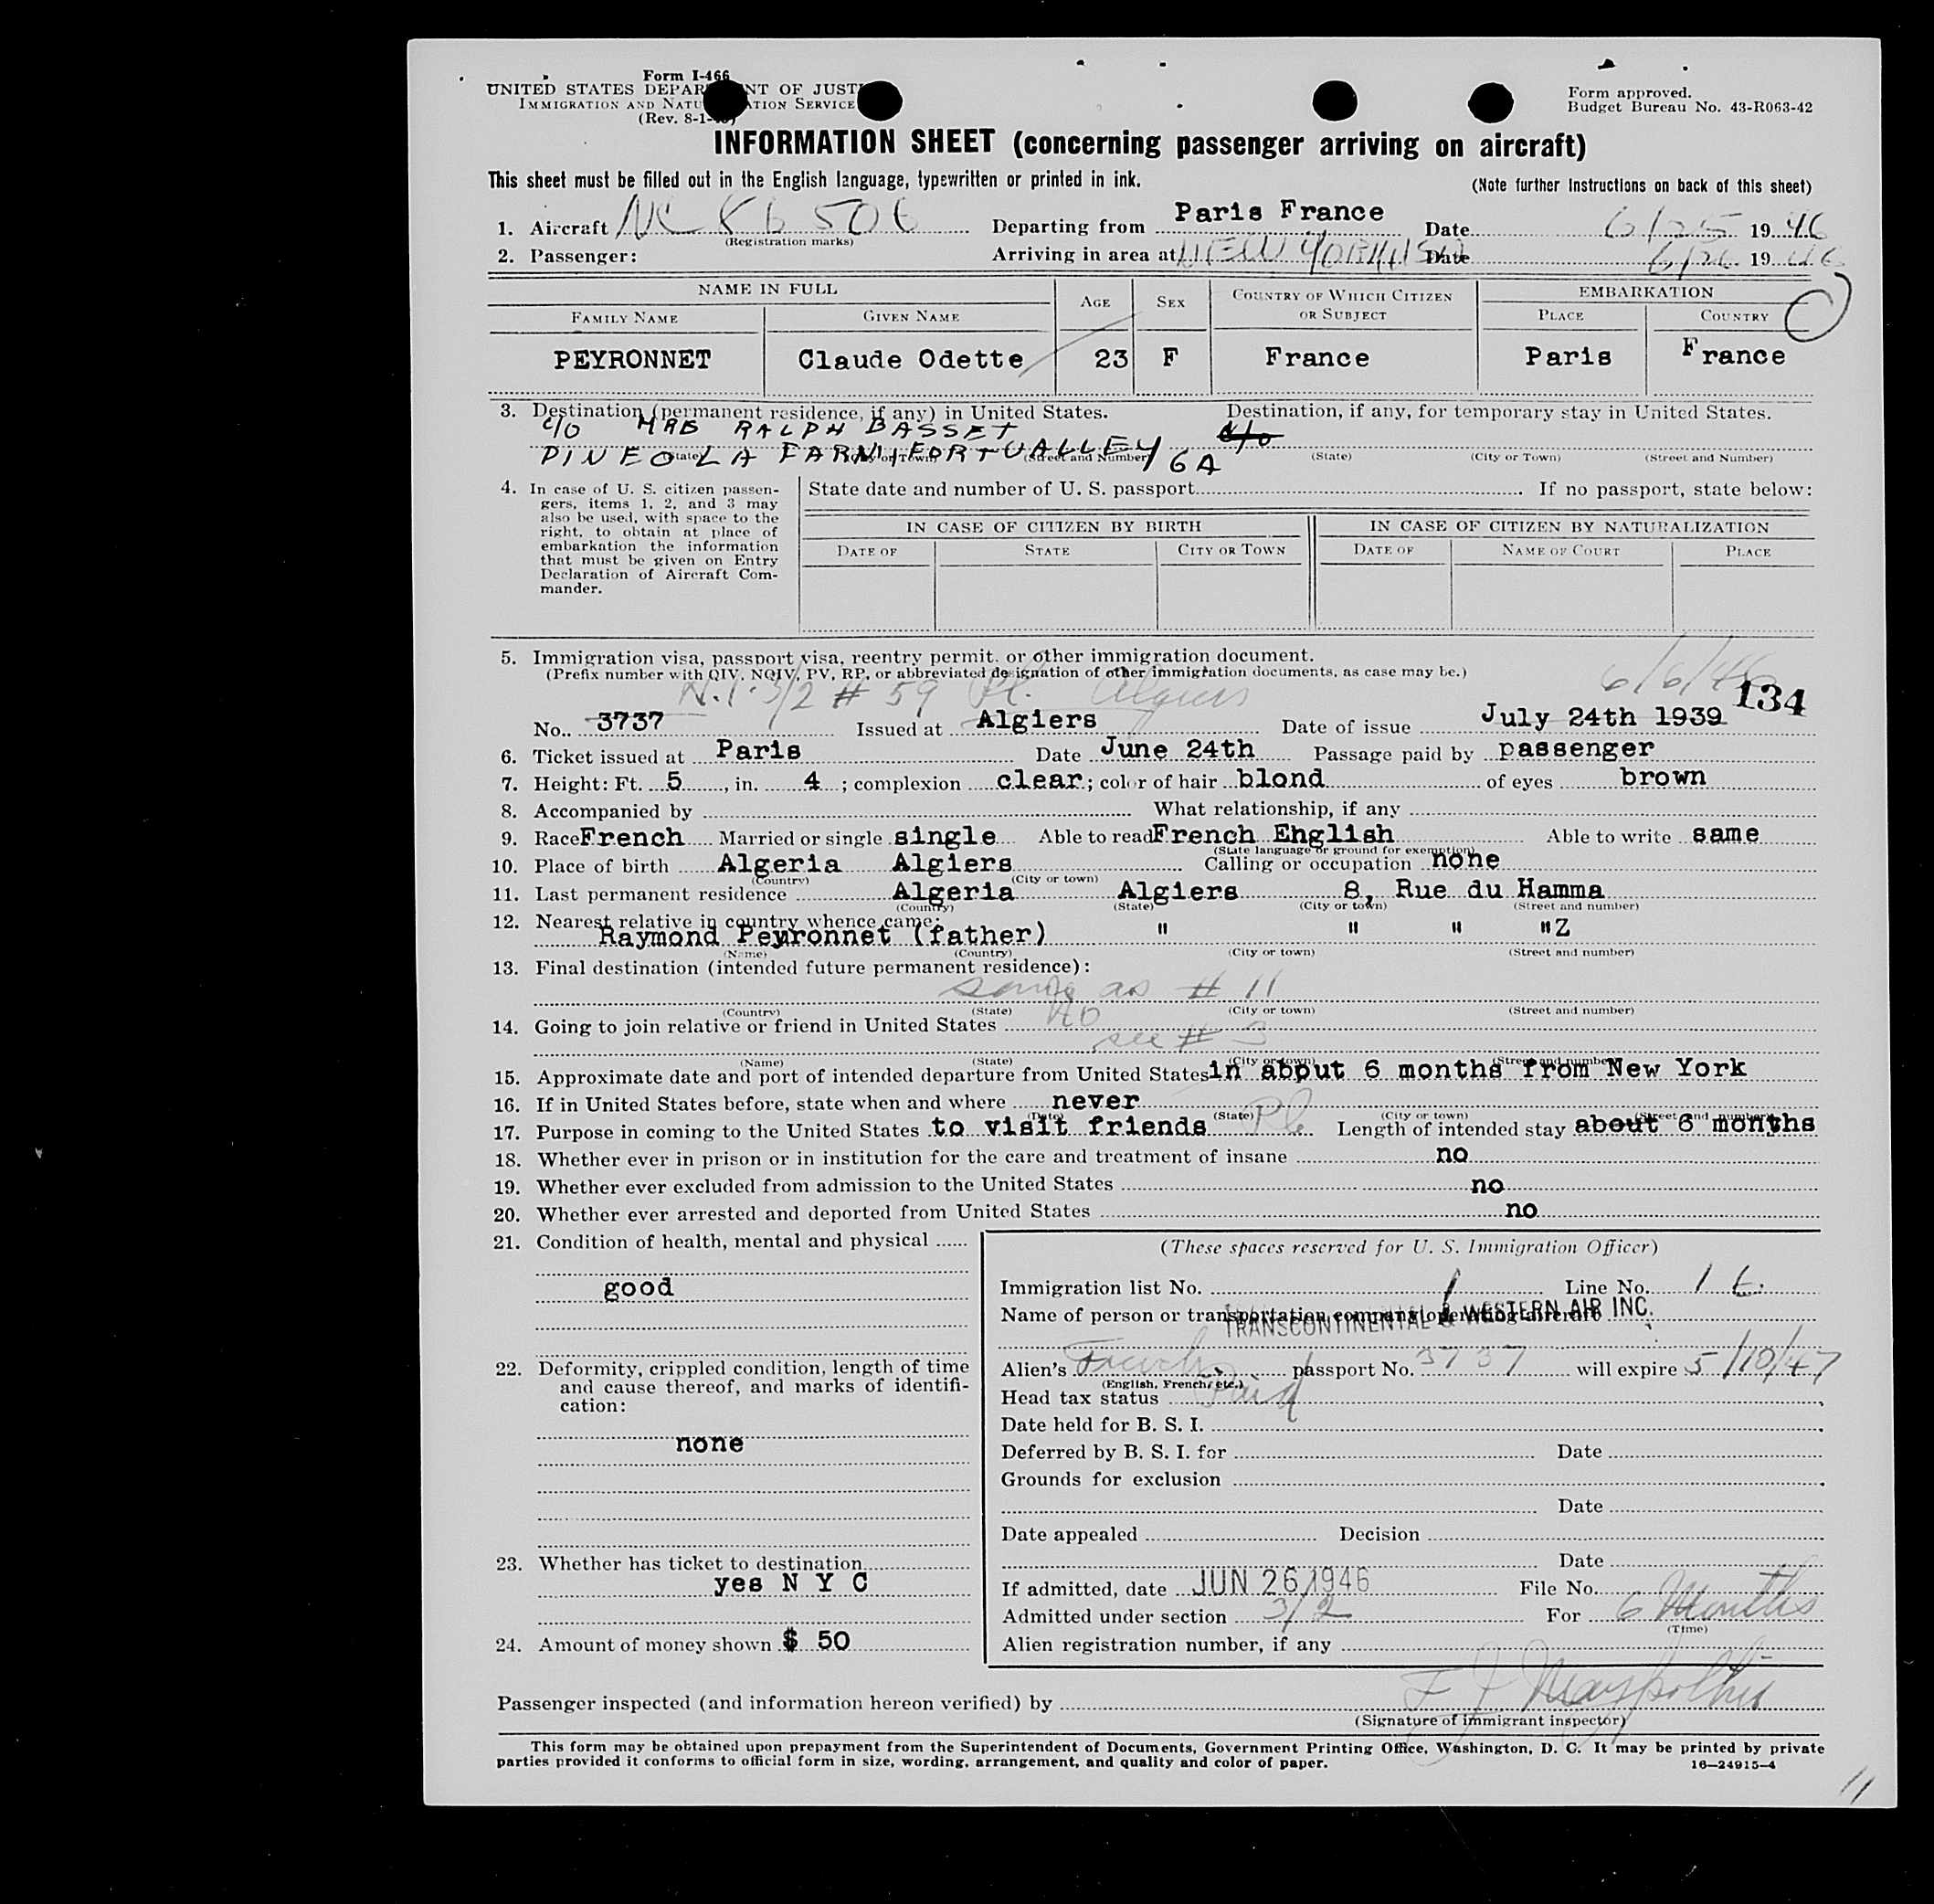 Form I-466
UNITED STATES DEPARTMENT OF JUSTICE
IMMIGRATION AND NATURALIZATION SERVICE
(Rev. 8-1-
Form approved.
Budget Bureau No. 43-R063-42
INFORMATION SHEET (concerning passenger arriving on aircraft)
This sheet must be filled out in the English language, typewritten or printed in ink.
(Note further instructions on back of this sheet)
1. Aircraft NC 86506 Departing from Paris France Date 6/25 1946
(Registration marks)
2. Passenger: Arriving in area at NEW YORK Date 6/26 1946
NAME IN FULL AGE SEX COUNTRY OF WHICH CITIZEN OR SUBJECT EMBARKATION
FAMILY NAME GIVEN NAME PLACE COUNTRY
PEYRONNET Claude Odette 23 F France Paris France
3. Destination (permanent residence, if any) in United States. Destination, if any, for temporary stay in United States.
c/o MRS RALPH BASSET c/o
PINEOLA FARM, FORT VALLEY GA
(State) (City or Town) (Street and Number) (State) (City or Town) (Street and Number)
4. In case of U. S. citizen passen-
gers, items 1, 2, and 3 may
also be used, with space to the
right, to obtain at place of
embarkation the information
that must be given on Entry
Declaration of Aircraft Com-
mander.
State date and number of U. S. passport If no passport, state below:
IN CASE OF CITIZEN BY BIRTH IN CASE OF CITIZEN BY NATURALIZATION
DATE OF STATE CITY OR TOWN DATE OF NAME OF COURT PLACE
5. Immigration visa, passport visa, reentry permit, or other immigration document.
(Prefix number with QIV, NQIV, PV, RP, or abbreviated designation of other immigration documents, as case may be.)
3/2 # 59 Algiers 6/6/46
134
No. 3737 Issued at Algiers Date of issue July 24th 1939
6. Ticket issued at Paris Date June 24th Passage paid by passenger
7. Height: Ft. 5, in. 4; complexion clear; color of hair blond of eyes brown
8. Accompanied by What relationship, if any
9. Race French Married or single single Able to read French English Able to write same
(State language or ground for exemption)
10. Place of birth Algeria Algiers Calling or occupation none
(Country) (City or town)
11. Last permanent residence Algeria Algiers 8, Rue du Hamma
(Country) (State) (City or town) (Street and number)
12. Nearest relative in country whence came:
Raymond Peyronnet (father) " " " "Z
(Name) (Country) (City or town) (Street and number)
13. Final destination (intended future permanent residence):
same as # 11
(Country) (State) (City or town) (Street and number)
14. Going to join relative or friend in United States No
see # 3
(Name) (State) (City or town) (Street and number)
15. Approximate date and port of intended departure from United States in about 6 months from New York
16. If in United States before, state when and where never
(Date) (State) (City or town) (Street and number)
17. Purpose in coming to the United States to visit friends Pl Length of intended stay about 6 months
18. Whether ever in prison or in institution for the care and treatment of insane no
19. Whether ever excluded from admission to the United States no
20. Whether ever arrested and deported from United States no
21. Condition of health, mental and physical
good
22. Deformity, crippled condition, length of time
and cause thereof, and marks of identifi-
cation:
none
23. Whether has ticket to destination
yes N Y C
24. Amount of money shown $ 50
(These spaces reserved for U. S. Immigration Officer)
Immigration list No. 1 Line No. 1
Name of person or transportation company operating aircraft
TRANSCONTINENTAL & WESTERN AIR INC.
Alien's French passport No. 3737 will expire 5/10/47
(English, French, etc.)
Head tax status Paid
Date held for B. S. I.
Deferred by B. S. I. for Date
Grounds for exclusion
Date
Date appealed Decision
Date
If admitted, date JUN 26 1946 File No.
Admitted under section 3/2 For 6 Months
(Time)
Alien registration number, if any
Passenger inspected (and information hereon verified) by
(Signature of immigrant inspector)
This form may be obtained upon prepayment from the Superintendent of Documents, Government Printing Office, Washington, D. C. It may be printed by private
parties provided it conforms to official form in size, wording, arrangement, and quality and color of paper.
16—24915-4
11